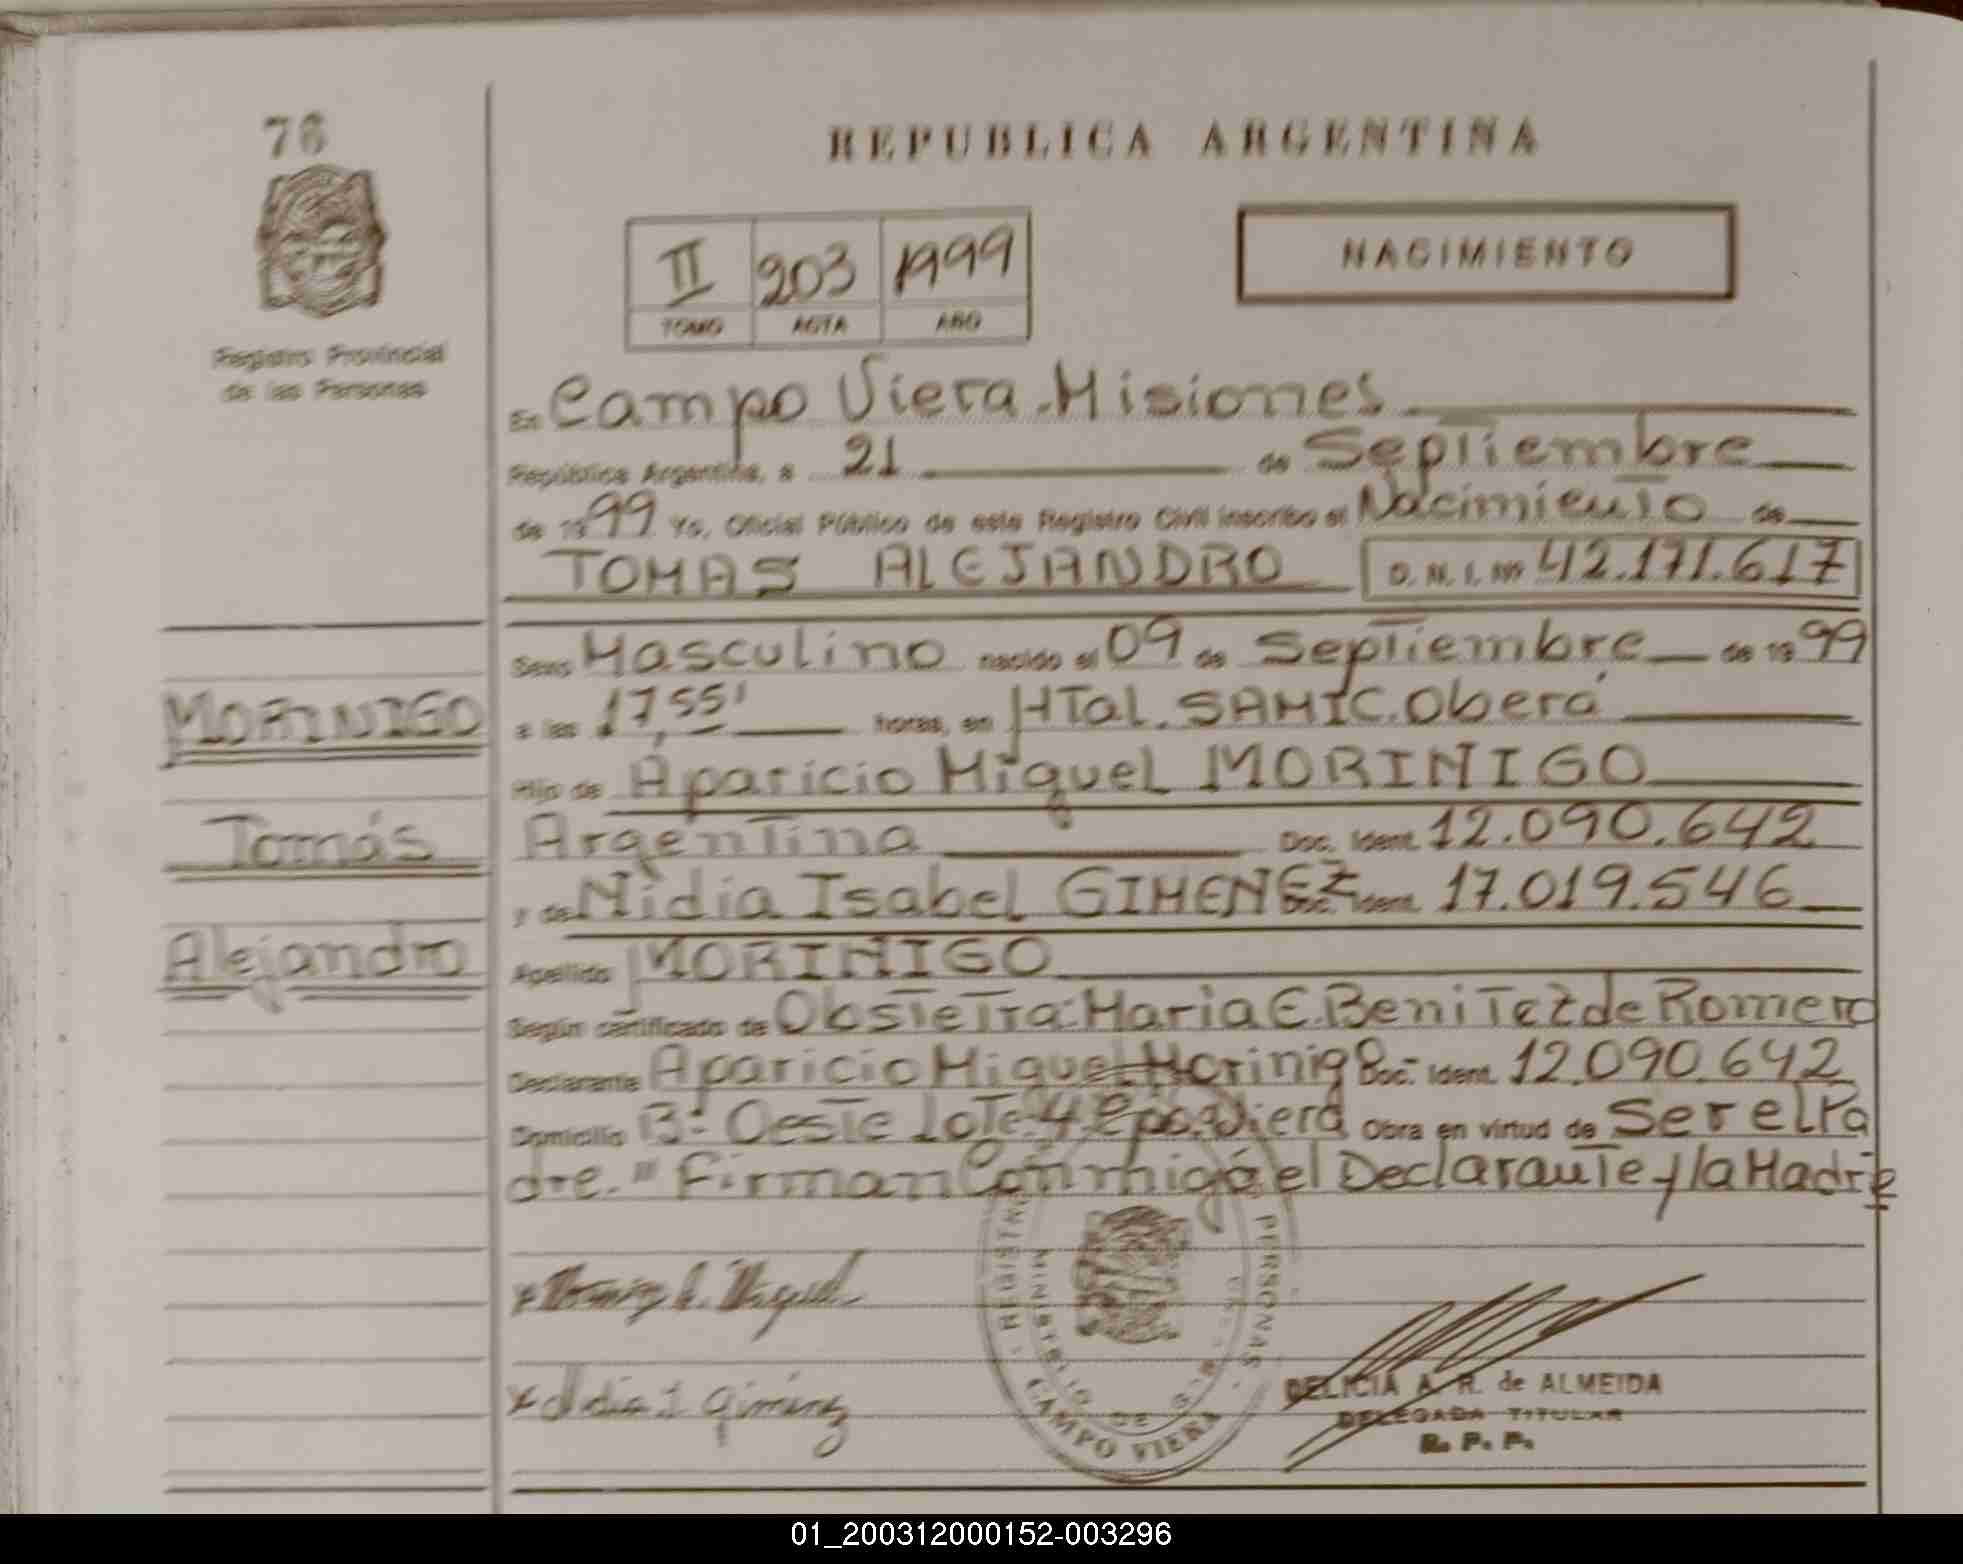 76
Registro Provincial
de las Personas
MORINIGO
Tomás
Alejandro
REPUBLICA ARGENTINA
II 203 1999
TOMO ACTA AÑO
NACIMIENTO
En Campo Viera.Misiones
República Argentina, a 21 de Septiembre
de 1999 Yo, Oficial Público de este Registro Civil inscribo el Nacimiento de
TOMAS ALEJANDRO D. N. I. Nº 42.171.617
Sexo Masculino nacido el 09 de Septiembre de 1999
a las 17,55' horas, en HTal. SAMIC. Oberá
Hijo de Aparicio Miguel MORINIGO
Argentina Doc. Ident. 12.090.642
y de Nidia Isabel GIMENEZ Doc. Ident. 17.019.546
Apellido MORINIGO
Según certificado de Obstetra: Maria E. Benitez de Romero
Declarante Aparicio Miguel Morinigo Doc. Ident. 12.090.642
Domicilio Bº Oeste Lote 4. Cpo. Viera Obra en virtud de Ser el Pa
dre. " Firman Conmigo el Declarante y la Madre
PERSONAS
MINISTERIO DE
CAMPO VIERA
x Nidia I Giménez
DELICIA A. R. de ALMEIDA
DELEGADA TITULAR
R. P. P.
01_200312000152-003296